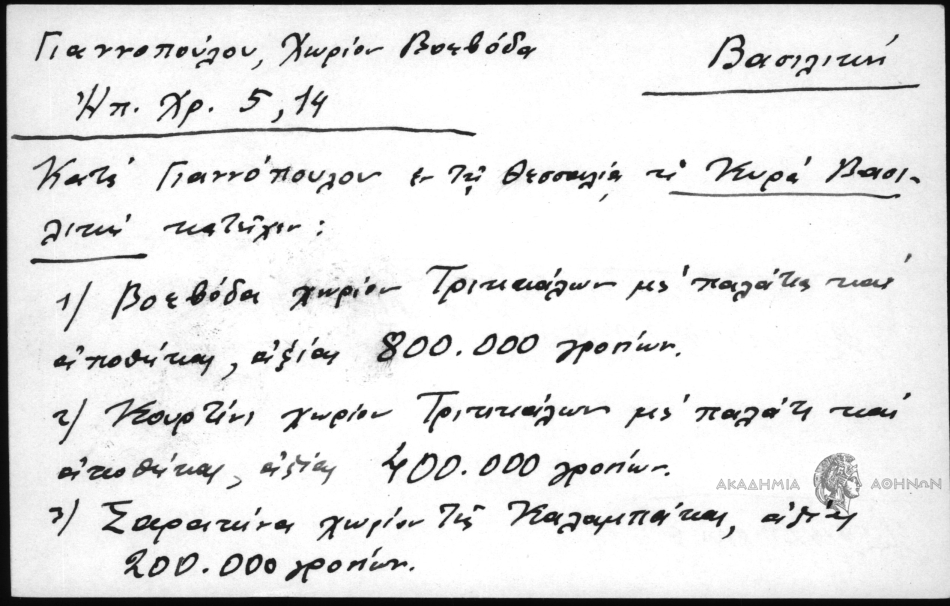 Γιαννοπούλου, Χωρίον Βοεβόδα
Βασιλική
Ἠπ. Χρ. 5, 14
Κατὰ Γιαννόπουλον ἐν τῇ Θεσσαλίᾳ ἡ Κυρὰ Βασι-
λικὴ κατεῖχεν:
1) Βοεβόδα χωρίον Τρικκάλων μὲ παλάτι καὶ
ἀποθήκας, ἀξίας 800.000 γροσίων.
2) Κουρτέσι χωρίον Τρικκάλων μὲ παλάτι καὶ
ἀποθήκας, ἀξίας 400.000 γροσίων.
3) Σαρακίνα χωρίον τῆς Καλαμπάκας, ἀξίας
200.000 γροσίων.
ΑΚΑΔΗΜΙΑ ΑΘΗΝΩΝ